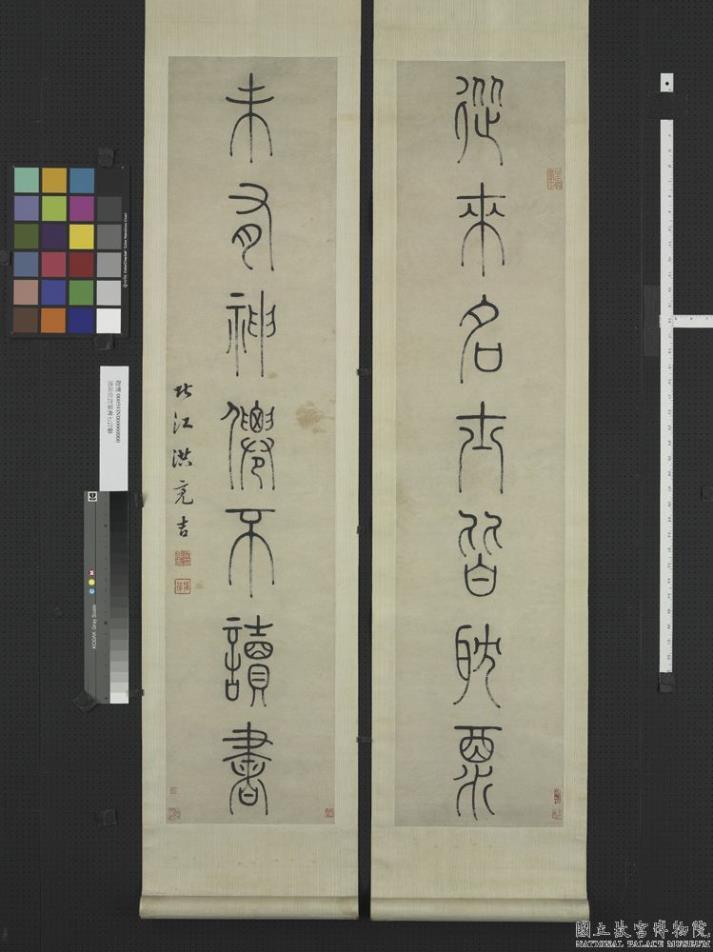 從來名士皆耽酒
未有神僊不讀書
北江洪亮吉
KODAK Gray Scale
國立故宮博物院
NATIONAL PALACE MUSEUM